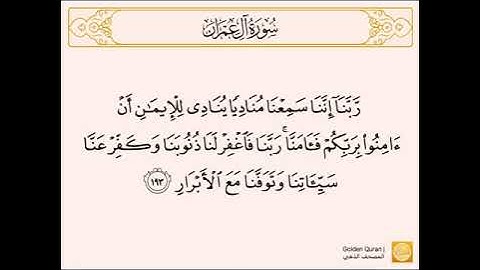 سُورَةُ آلِ عِمْرَان
رَّبَّنَآ إِنَّنَا سَمِعْنَا مُنَادِيًا يُنَادِى لِلْإِيمَٰنِ أَنْ
ءَامِنُوا۟ بِرَبِّكُمْ فَـَٔامَنَّا ۚ رَبَّنَا فَٱغْفِرْ لَنَا ذُنُوبَنَا وَكَفِّرْ عَنَّا
سَيِّـَٔاتِنَا وَتَوَفَّنَا مَعَ ٱلْأَبْرَارِ ١٩٣
Golden Quran |
المصحف الذهبي